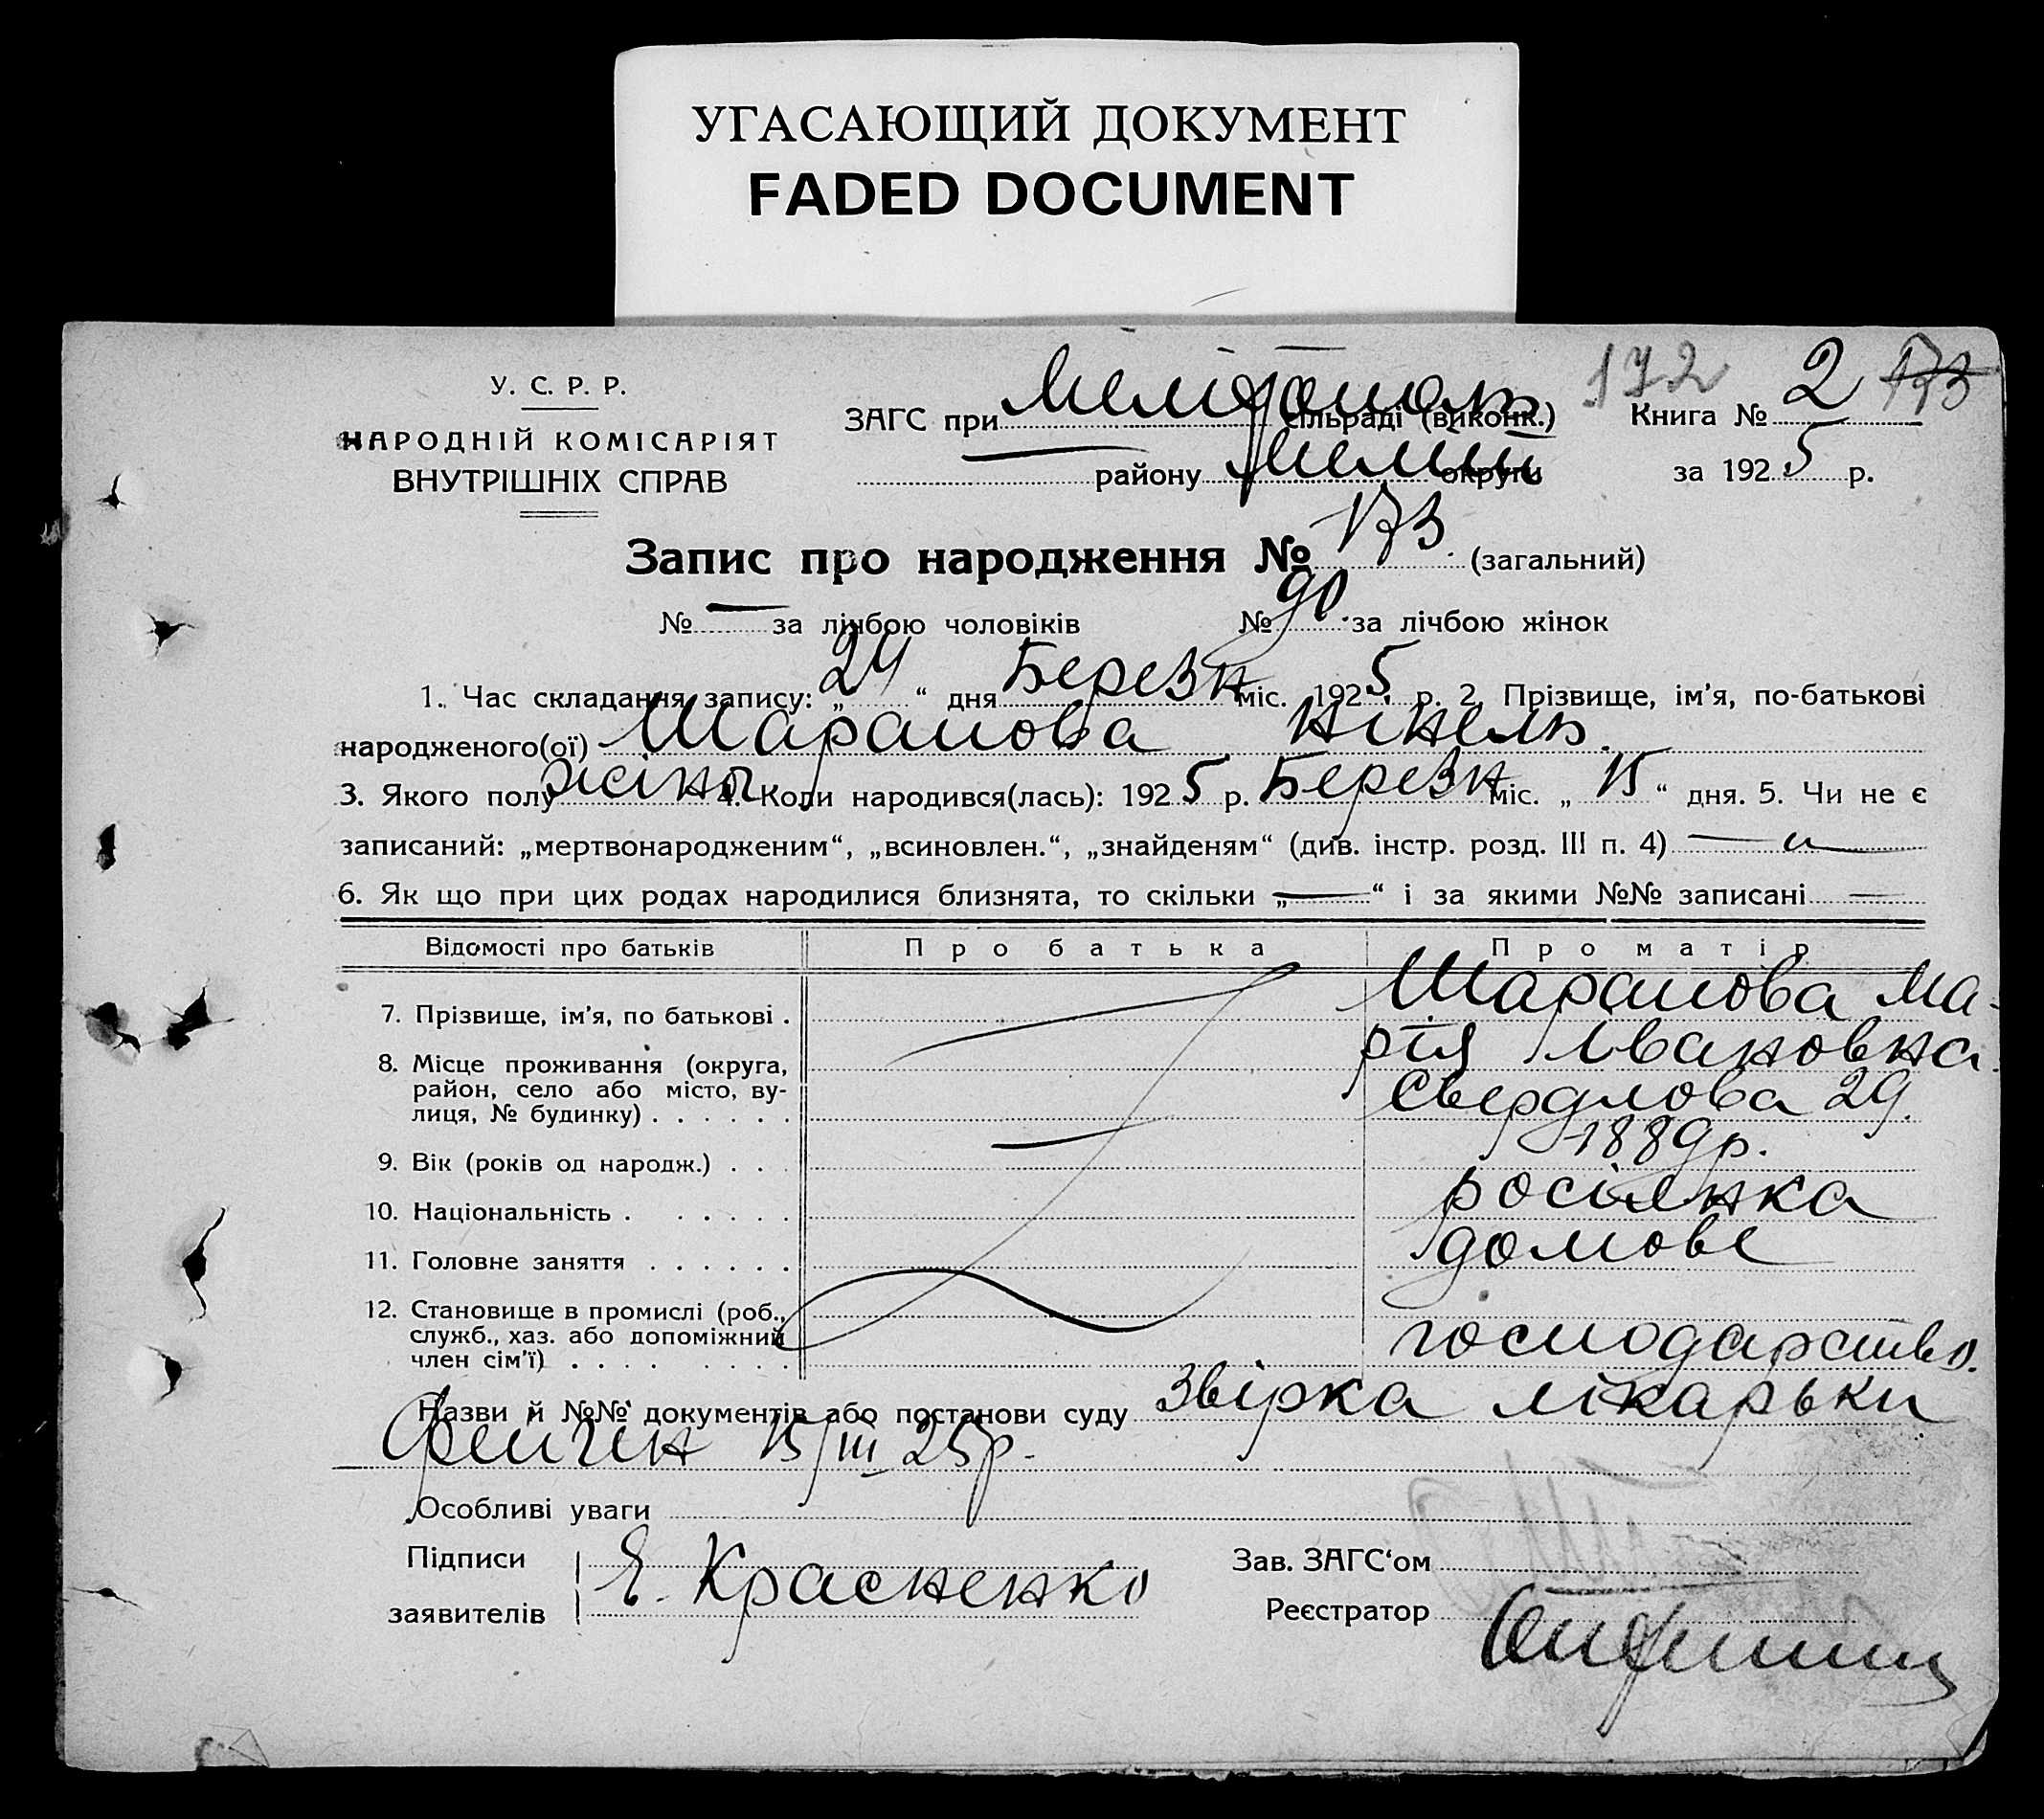 УГАСАЮЩИЙ ДОКУМЕНТ
FADED DOCUMENT
172
У. С. Р. Р.
НАРОДНІЙ КОМІСАРІЯТ
ВНУТРІШНІХ СПРАВ
ЗАГС при Мелітополь сільраді (виконк.) Книга № 2 173
району Меліт округи за 1925 р.
Запис про народження № 173 (загальний)
№ — за лічбою чоловіків № 90 за лічбою жінок
1. Час складання запису: „24“ дня Березн міс. 1925 р. 2. Прізвище, ім'я, по-батькові
народженого(ої) Шарапова Нінель.
3. Якого полу жіно 4. Коли народився(лась): 1925 р. Березн міс. „15“ дня. 5. Чи не є
записаний: „мертвонародженим“, „всиновлен.“, „знайденям“ (див. інстр. розд. III п. 4)
6. Як що при цих родах народилися близнята, то скільки „—“ і за якими №№ записані —
Відомості про батьків Про батька Про матір
7. Прізвище, ім'я, по батькові . Шарапова Ма-
рія Івановна.
8. Місце проживання (округа,
район, село або місто, ву-
лиця, № будинку) . . . . . . Свердлова 29.
9. Вік (років од народж.) . . . — 1889 р.
10. Національність . . . . . . росіянка
11. Головне заняття . . . . . . домове
12. Становище в промислі (роб.,
служб., хаз. або допоміжний
член сім'ї) . . . . . . . . господарство.
Назви й №№ документів або постанови суду Звірка лікарьки
Фейгин 15/III 25 р.
Особливі уваги
Підписи
заявителів Е. Красненко
Зав. ЗАГС‘ом
Реєстратор